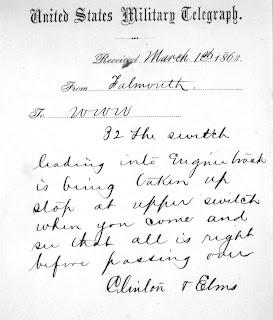 United States Military Telegraph.
Received March 1st 1863.
From Falmouth.
To W W W
32 The switch
leading into Engine track
is being taken up
stop at upper switch
when you come and
see that all is right
before passing over
Clinton & Elms